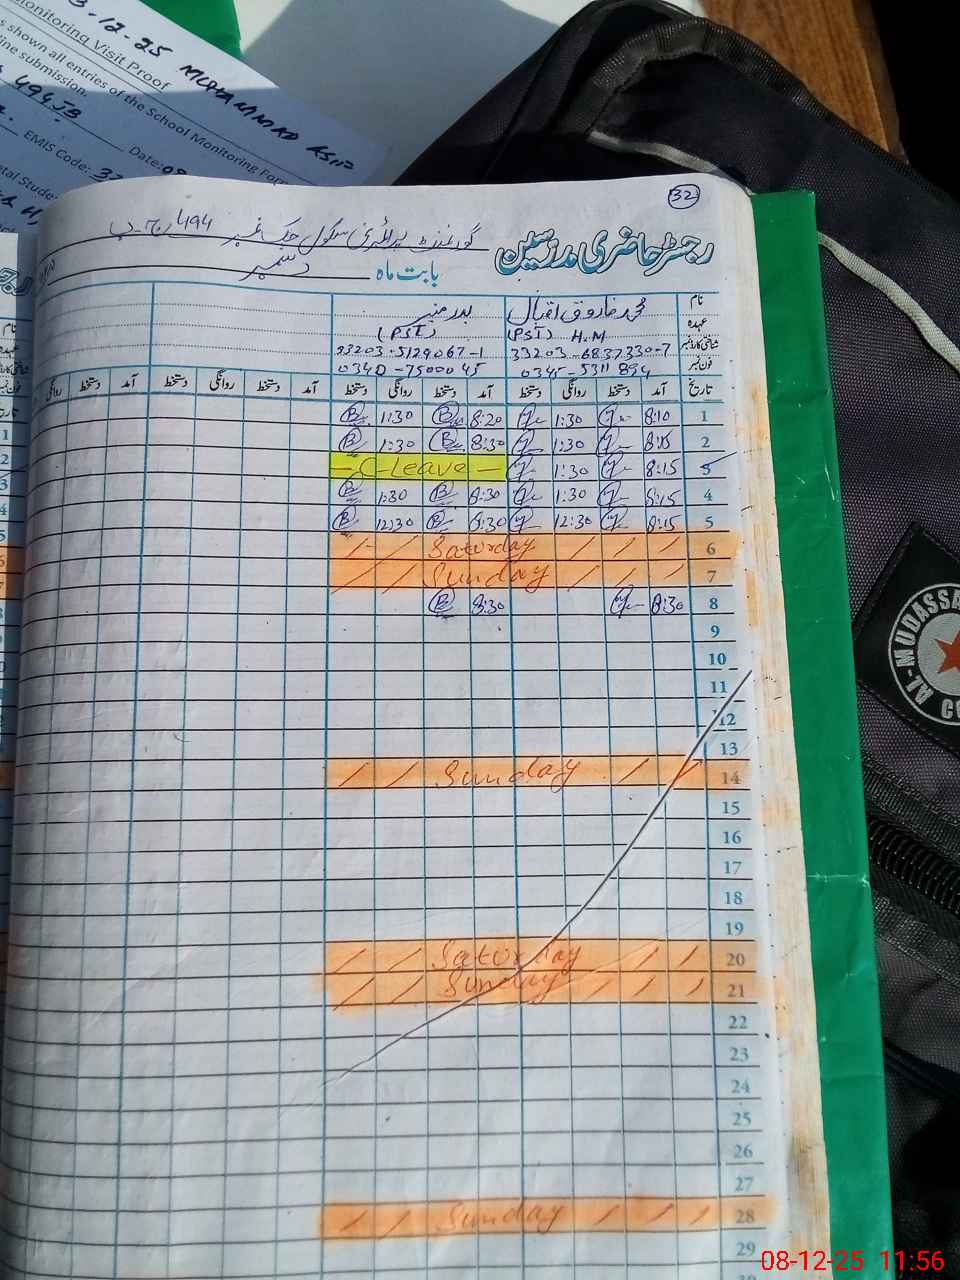 3-12-25 MUHAMMAD ASIF
Monitoring Visit Proof
shown all entries of the School Monitoring For
line submission.
494JB
EMIS Code: 33
Date: 08
tal Stude
32
رجسٹر حاضری مدرسین گورنمنٹ پرائمری سکول چک نمبر 494 ج۔ب
بابت ماہ دسمبر
نام محمد فاروق اقبال بدر منیر
عہدہ (PST) H.M (PST)
شناختی کارڈ نمبر 33203-6837330-7 33203-5129067-1
فون نمبر 0345-5311894 0340-7500045
تاریخ آمد دستخط روانگی دستخط آمد دستخط روانگی دستخط آمد دستخط روانگی دستخط آمد دستخط روانگی
1 8:10 1:30 8:20 1:30
2 8:15 1:30 8:30 1:30
3 8:15 1:30 - C-Leave -
4 8:15 1:30 8:30 1:30
5 8:15 12:30 8:30 12:30
6 Saturday
7 Sunday
8 8:30 8:30
9
10
11
12
13
14 Sunday
15
16
17
18
19
20 Saturday
21 Sunday
22
23
24
25
26
27
28 Sunday
29
AL-MUDASSA
CO
08-12-25 11:56